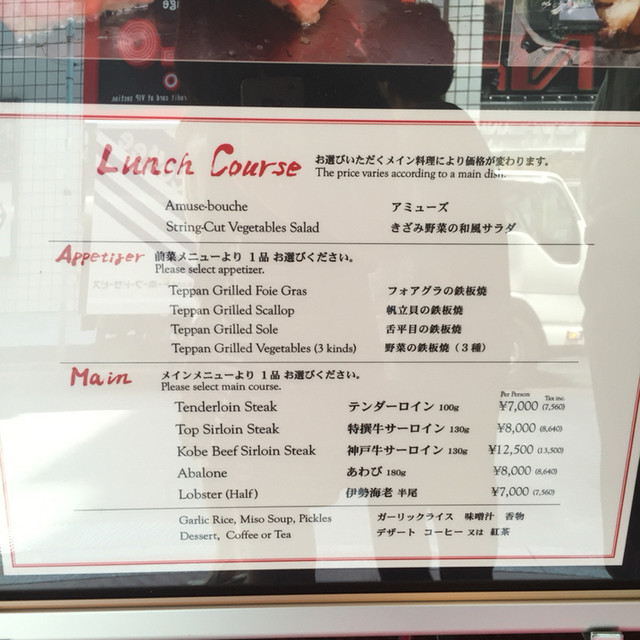 Lunch Course お選びいただくメイン料理により価格が変わります。
The price varies according to a main dish.
Amuse-bouche アミューズ
String-Cut Vegetables Salad きざみ野菜の和風サラダ
Appetizer 前菜メニューより 1品 お選びください。
Please select appetizer.
Teppan Grilled Foie Gras フォアグラの鉄板焼
Teppan Grilled Scallop 帆立貝の鉄板焼
Teppan Grilled Sole 舌平目の鉄板焼
Teppan Grilled Vegetables (3 kinds) 野菜の鉄板焼(3種)
Main メインメニューより 1品 お選びください。
Please select main course.
Per Person Tax inc.
Tenderloin Steak テンダーロイン 100g ¥7,000 (7,560)
Top Sirloin Steak 特撰牛サーロイン 130g ¥8,000 (8,640)
Kobe Beef Sirloin Steak 神戸牛サーロイン 130g ¥12,500 (13,500)
Abalone あわび 180g ¥8,000 (8,640)
Lobster (Half) 伊勢海老 半尾 ¥7,000 (7,560)
Garlic Rice, Miso Soup, Pickles ガーリックライス 味噌汁 香物
Dessert, Coffee or Tea デザート コーヒー 又は 紅茶